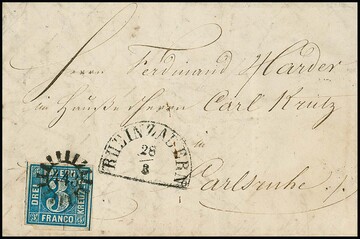 Herrn Ferdinand Harder
im Hause Herrn Carl Krutz
in
Carlsruhe
RHEINZABERN
28
8
DREI KREUZER
3
FRANCO